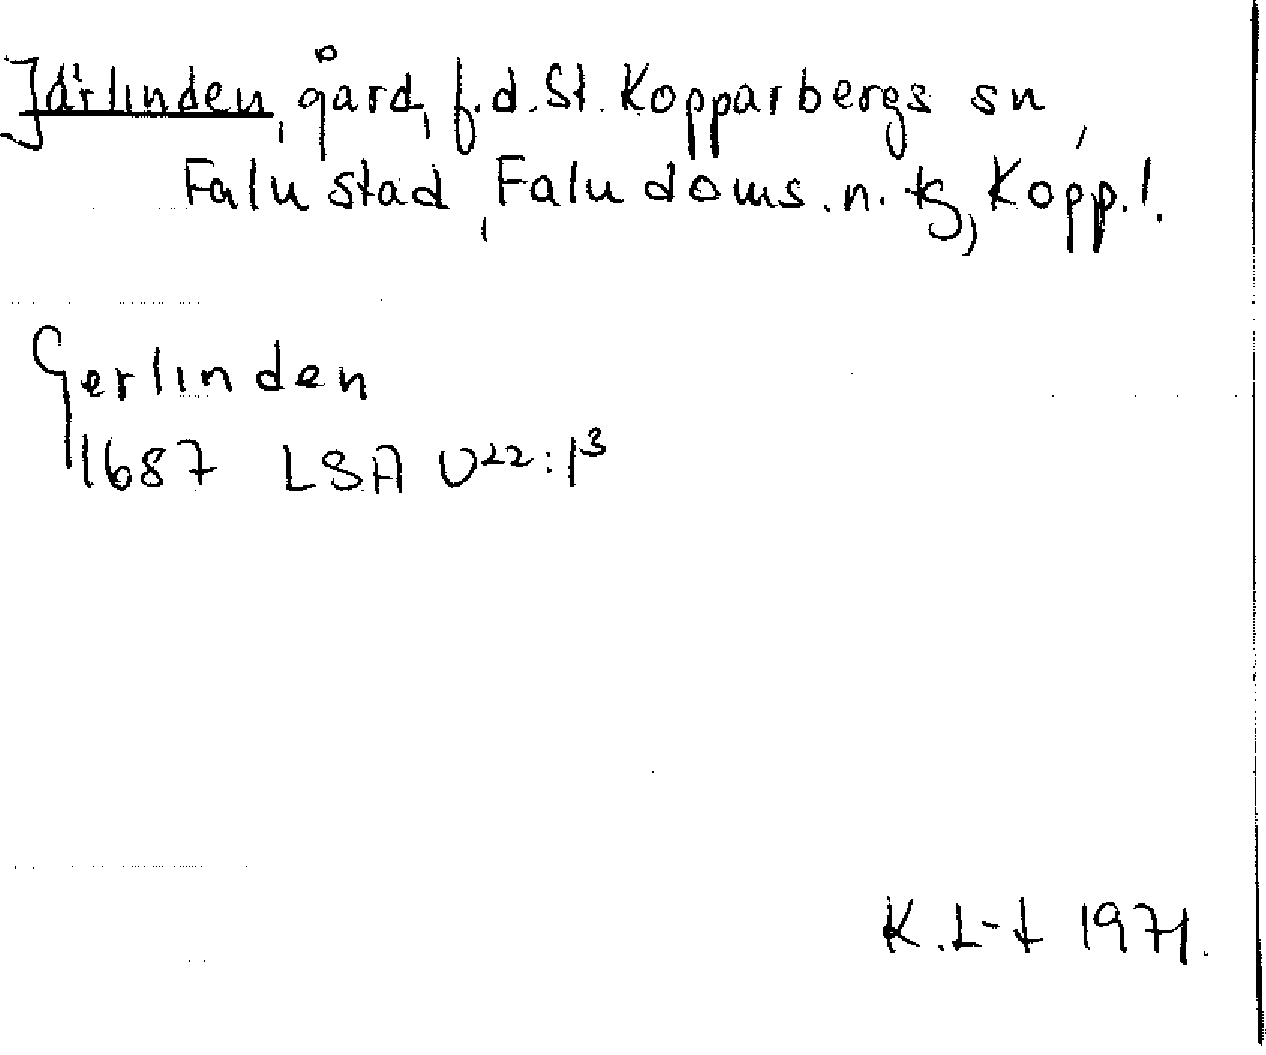 Järlinden, gård, f.d. St. Kopparbergs sn,
Falu stad, Falu doms. n. tg, Kopp. l.
Gerlinden
1687 LSA U²²:1³
K. L-t 1971.